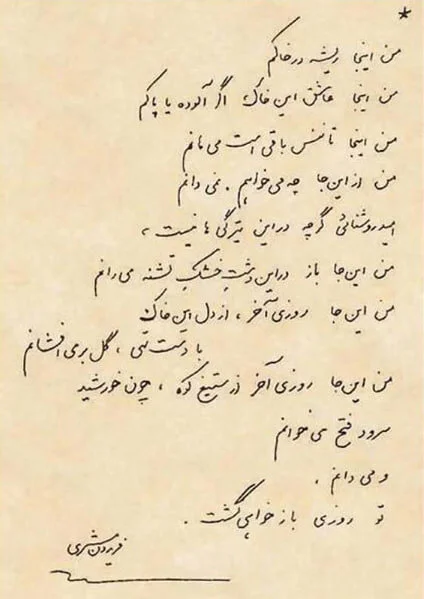 *
من اینجا ریشه در خاکم
من اینجا عاشق این خاک اگر آلوده یا پاکم
من اینجا تا نفس باقی است می مانم
من از این جا چه می خواهم . نمی دانم
امید روشنائی گرچه در این تیرگی ها نیست ،
من این جا باز در این دشتِ خشکِ تشنه می رانم
من این جا روزی آخر ، از دل این خاک
با دست تهی ، گل بر می افشانم
من این جا روزی آخر از ستیغ کوه ، چون خورشید
سرود فتح می خوانم
و می دانم .
تو روزی باز خواهی گشت .
فریدون مشیری